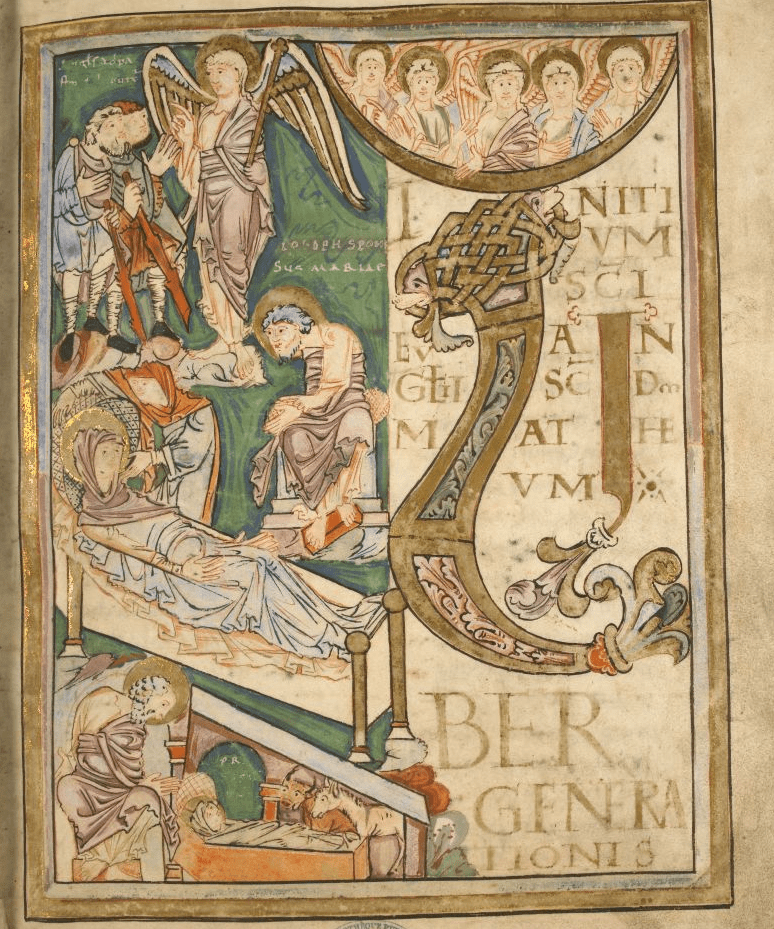 IOSEPH SPON
SUS MARIAE
INITI
VM
SCI
EV A N
GLII SC Dm
M AT HE
VM
LI
BER
GENERA
TIONIS